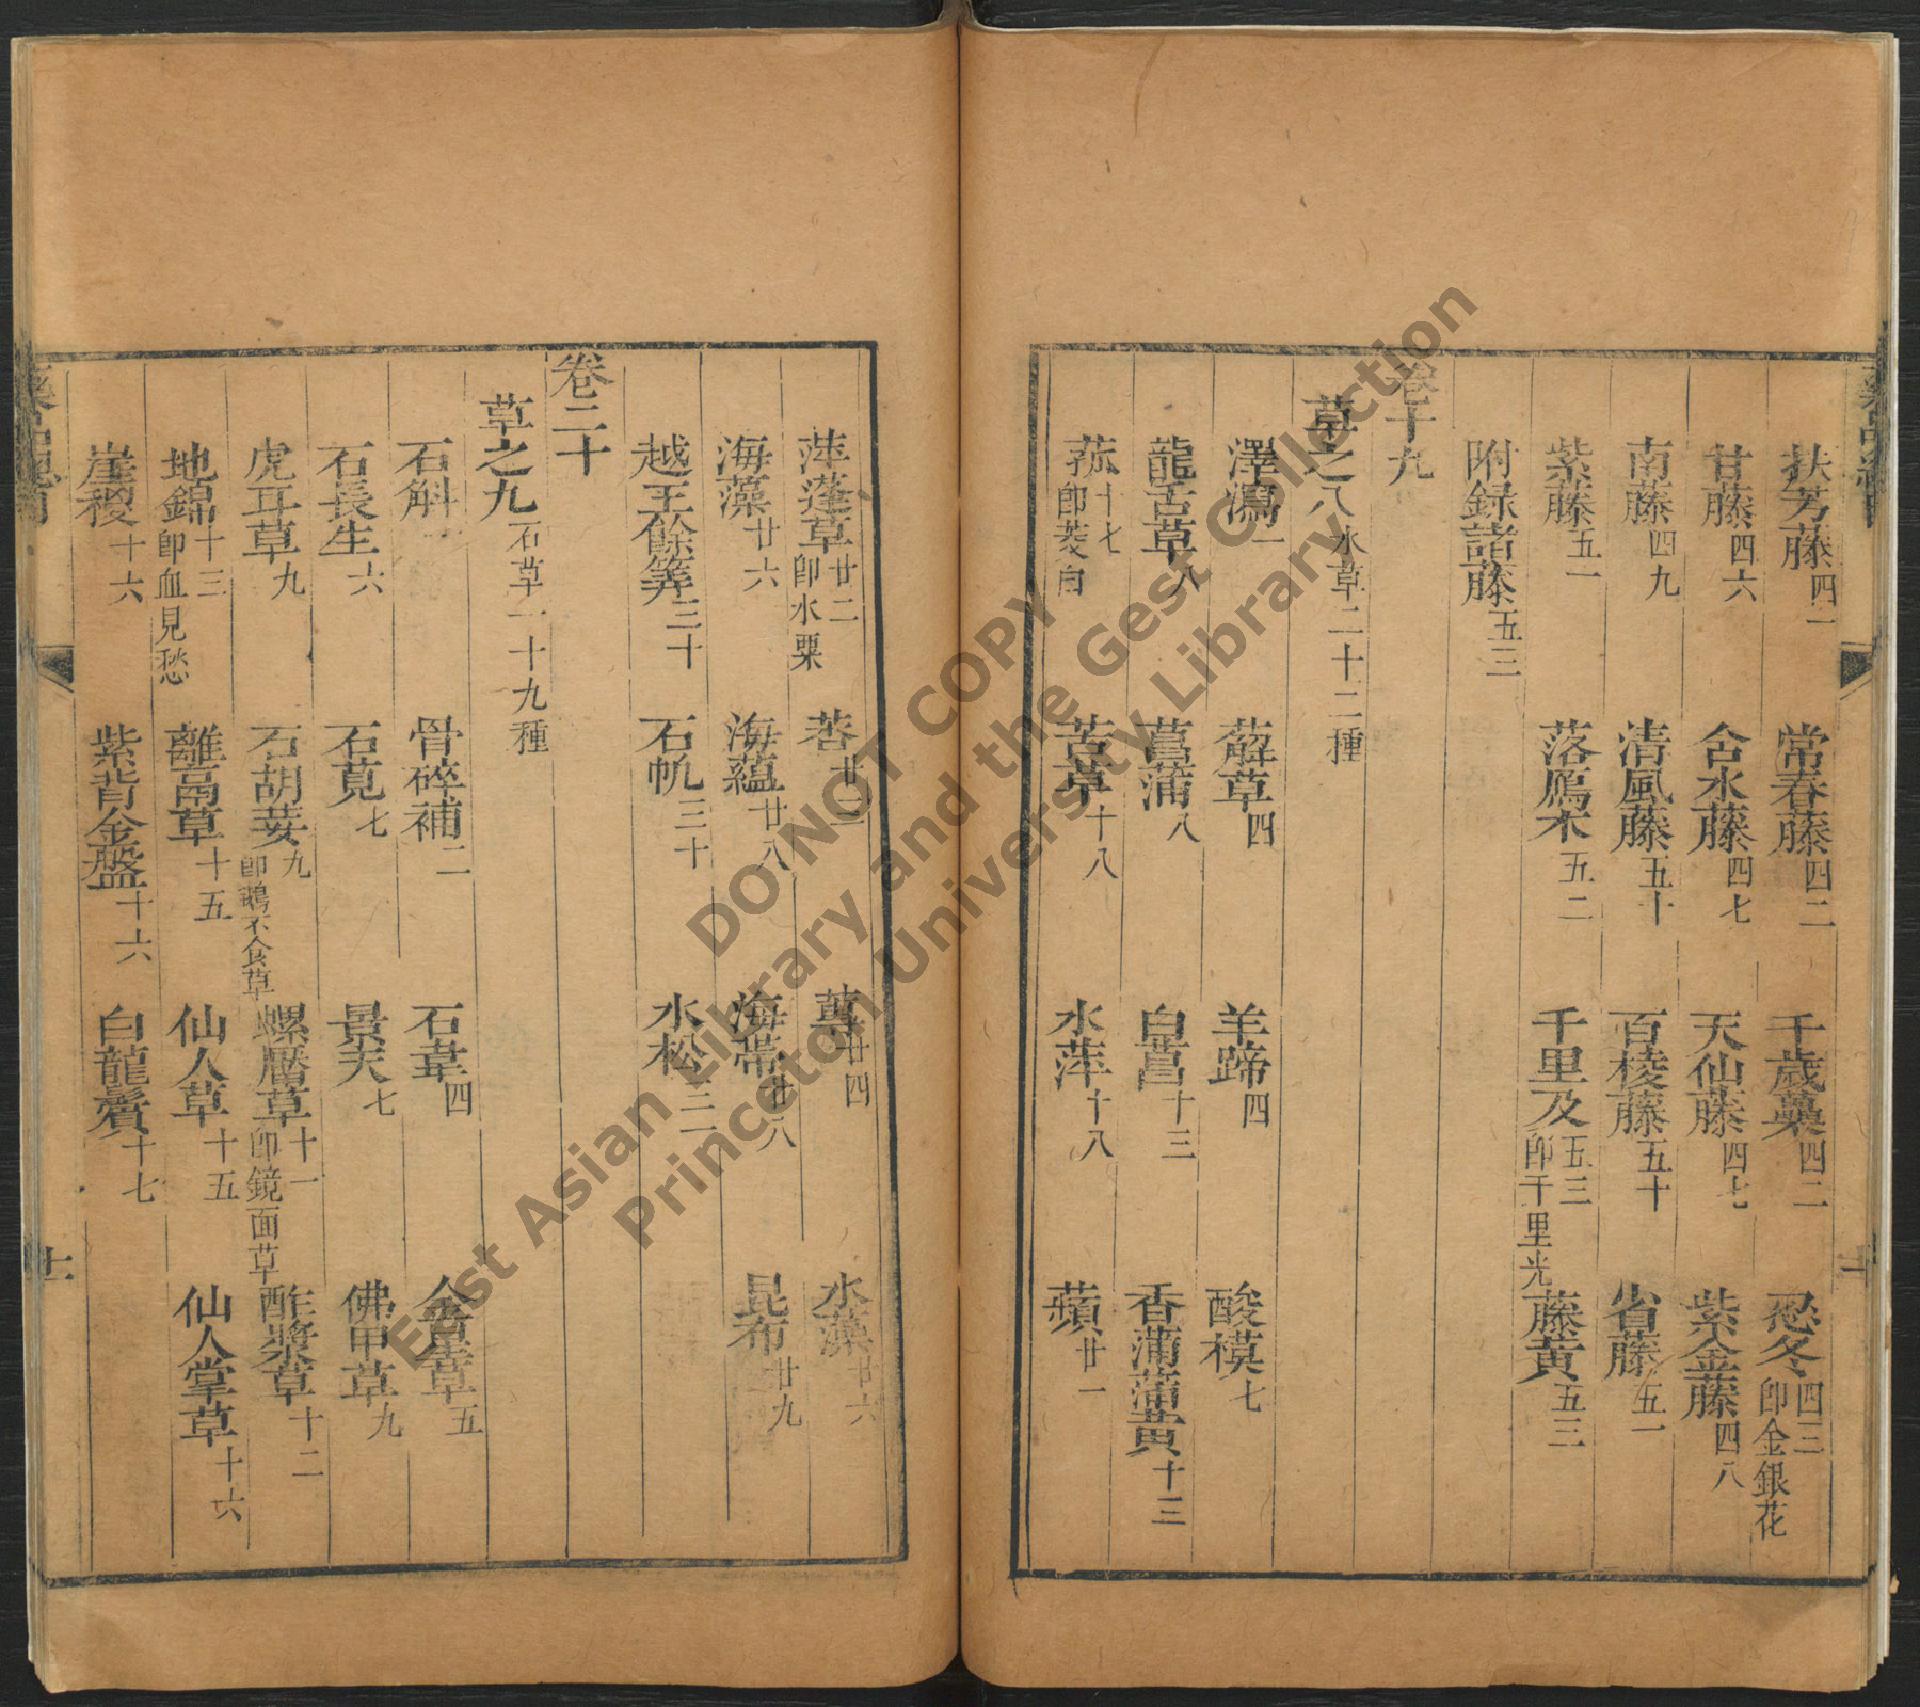 扶芳藤四一 常春藤四二 千歲蘽四二 忍冬四三即金銀花
甘藤四六 含水藤四七 天仙藤四七 紫金藤四八
南藤四九 清風藤五十 百棱藤五十 省藤五一
紫藤五一 落鴈木五二 千里及五三即千里光 藤黃五三
附録諸藤五三
卷十九
草之八水草二十二種
澤瀉一 薢草四 羊蹄四 酸模七
龍舌草八 菖蒲八 白菖十三 香蒲蒲黃十三
菰十七即茭白 苦草十八 水萍十八 蘋廿一
萍蓬草廿二即水粟 莕廿二 蓴廿四 水藻廿六
海藻廿六 海蘊廿八 海帶廿八 昆布廿九
越王餘筭三十 石帆三十 水松三一
卷二十
草之九石草一十九種
石斛 骨碎補二 石韋四 金星草五
石長生六 石莧七 景天七 佛甲草九
虎耳草九 石胡荽九即鵝不食草 螺厴草十一即鏡面草 酢漿草十二
地錦十三即血見愁 離鬲草十五 仙人草十五 仙人掌草十六
崖稷十六 紫背金盤十六 白龍鬚十七
DO NOT COPY
East Asian Library and the Gest Collection
Princeton University Library